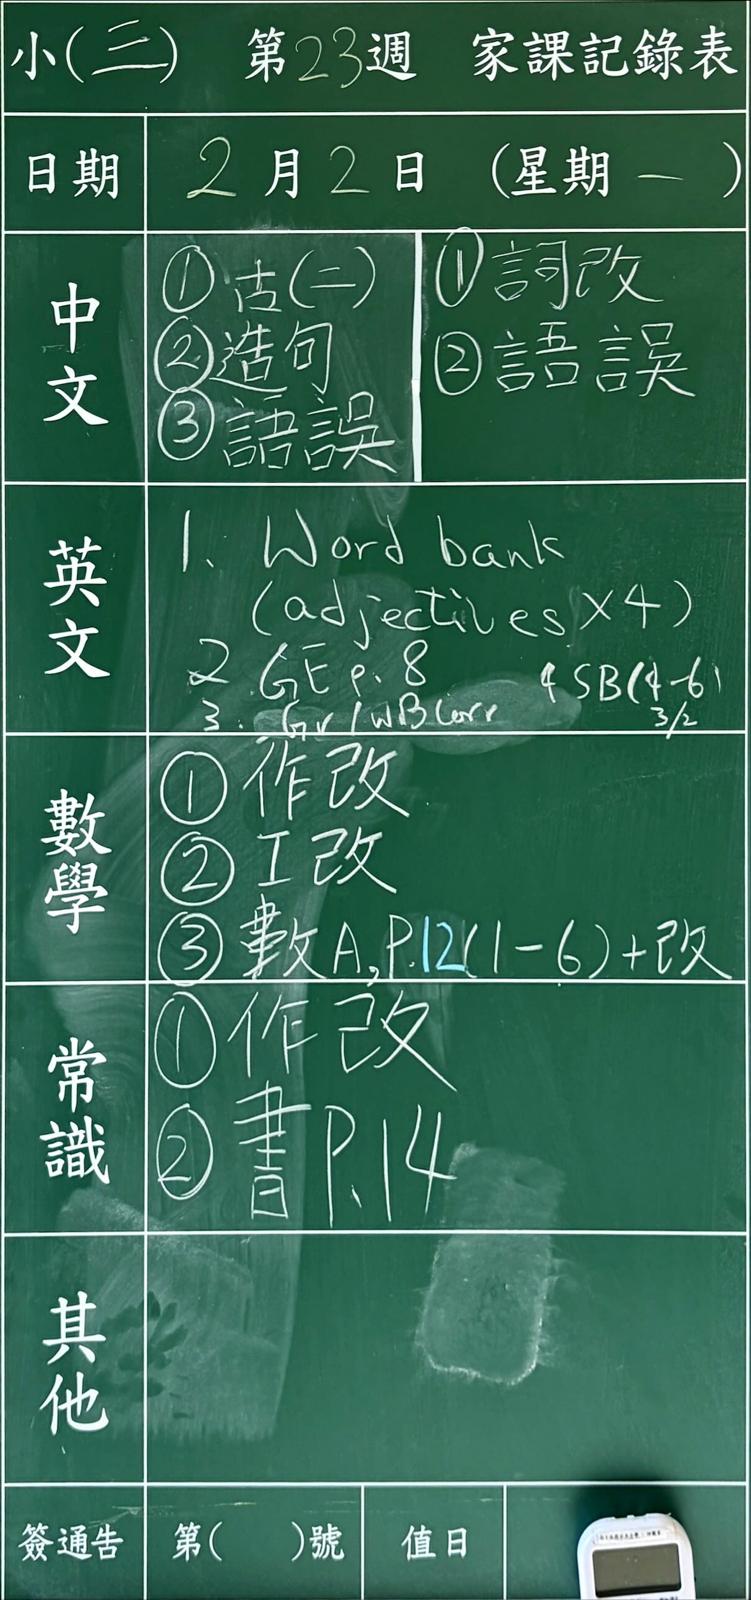 小(三) 第23週 家課記錄表
日期 2月2日 (星期一)
中文
①古(二)
②造句
③語誤
①詞改
②語誤
英文
1. Word bank
(adjectives×4)
2 GE p. 8
3. Gr/WB Corr
4 SB(4-6)
3/2
數學
①作改
②工改
③數A, P.12(1-6)+改
常識
①作改
②書P.14
其他
簽通告 第( )號 值日